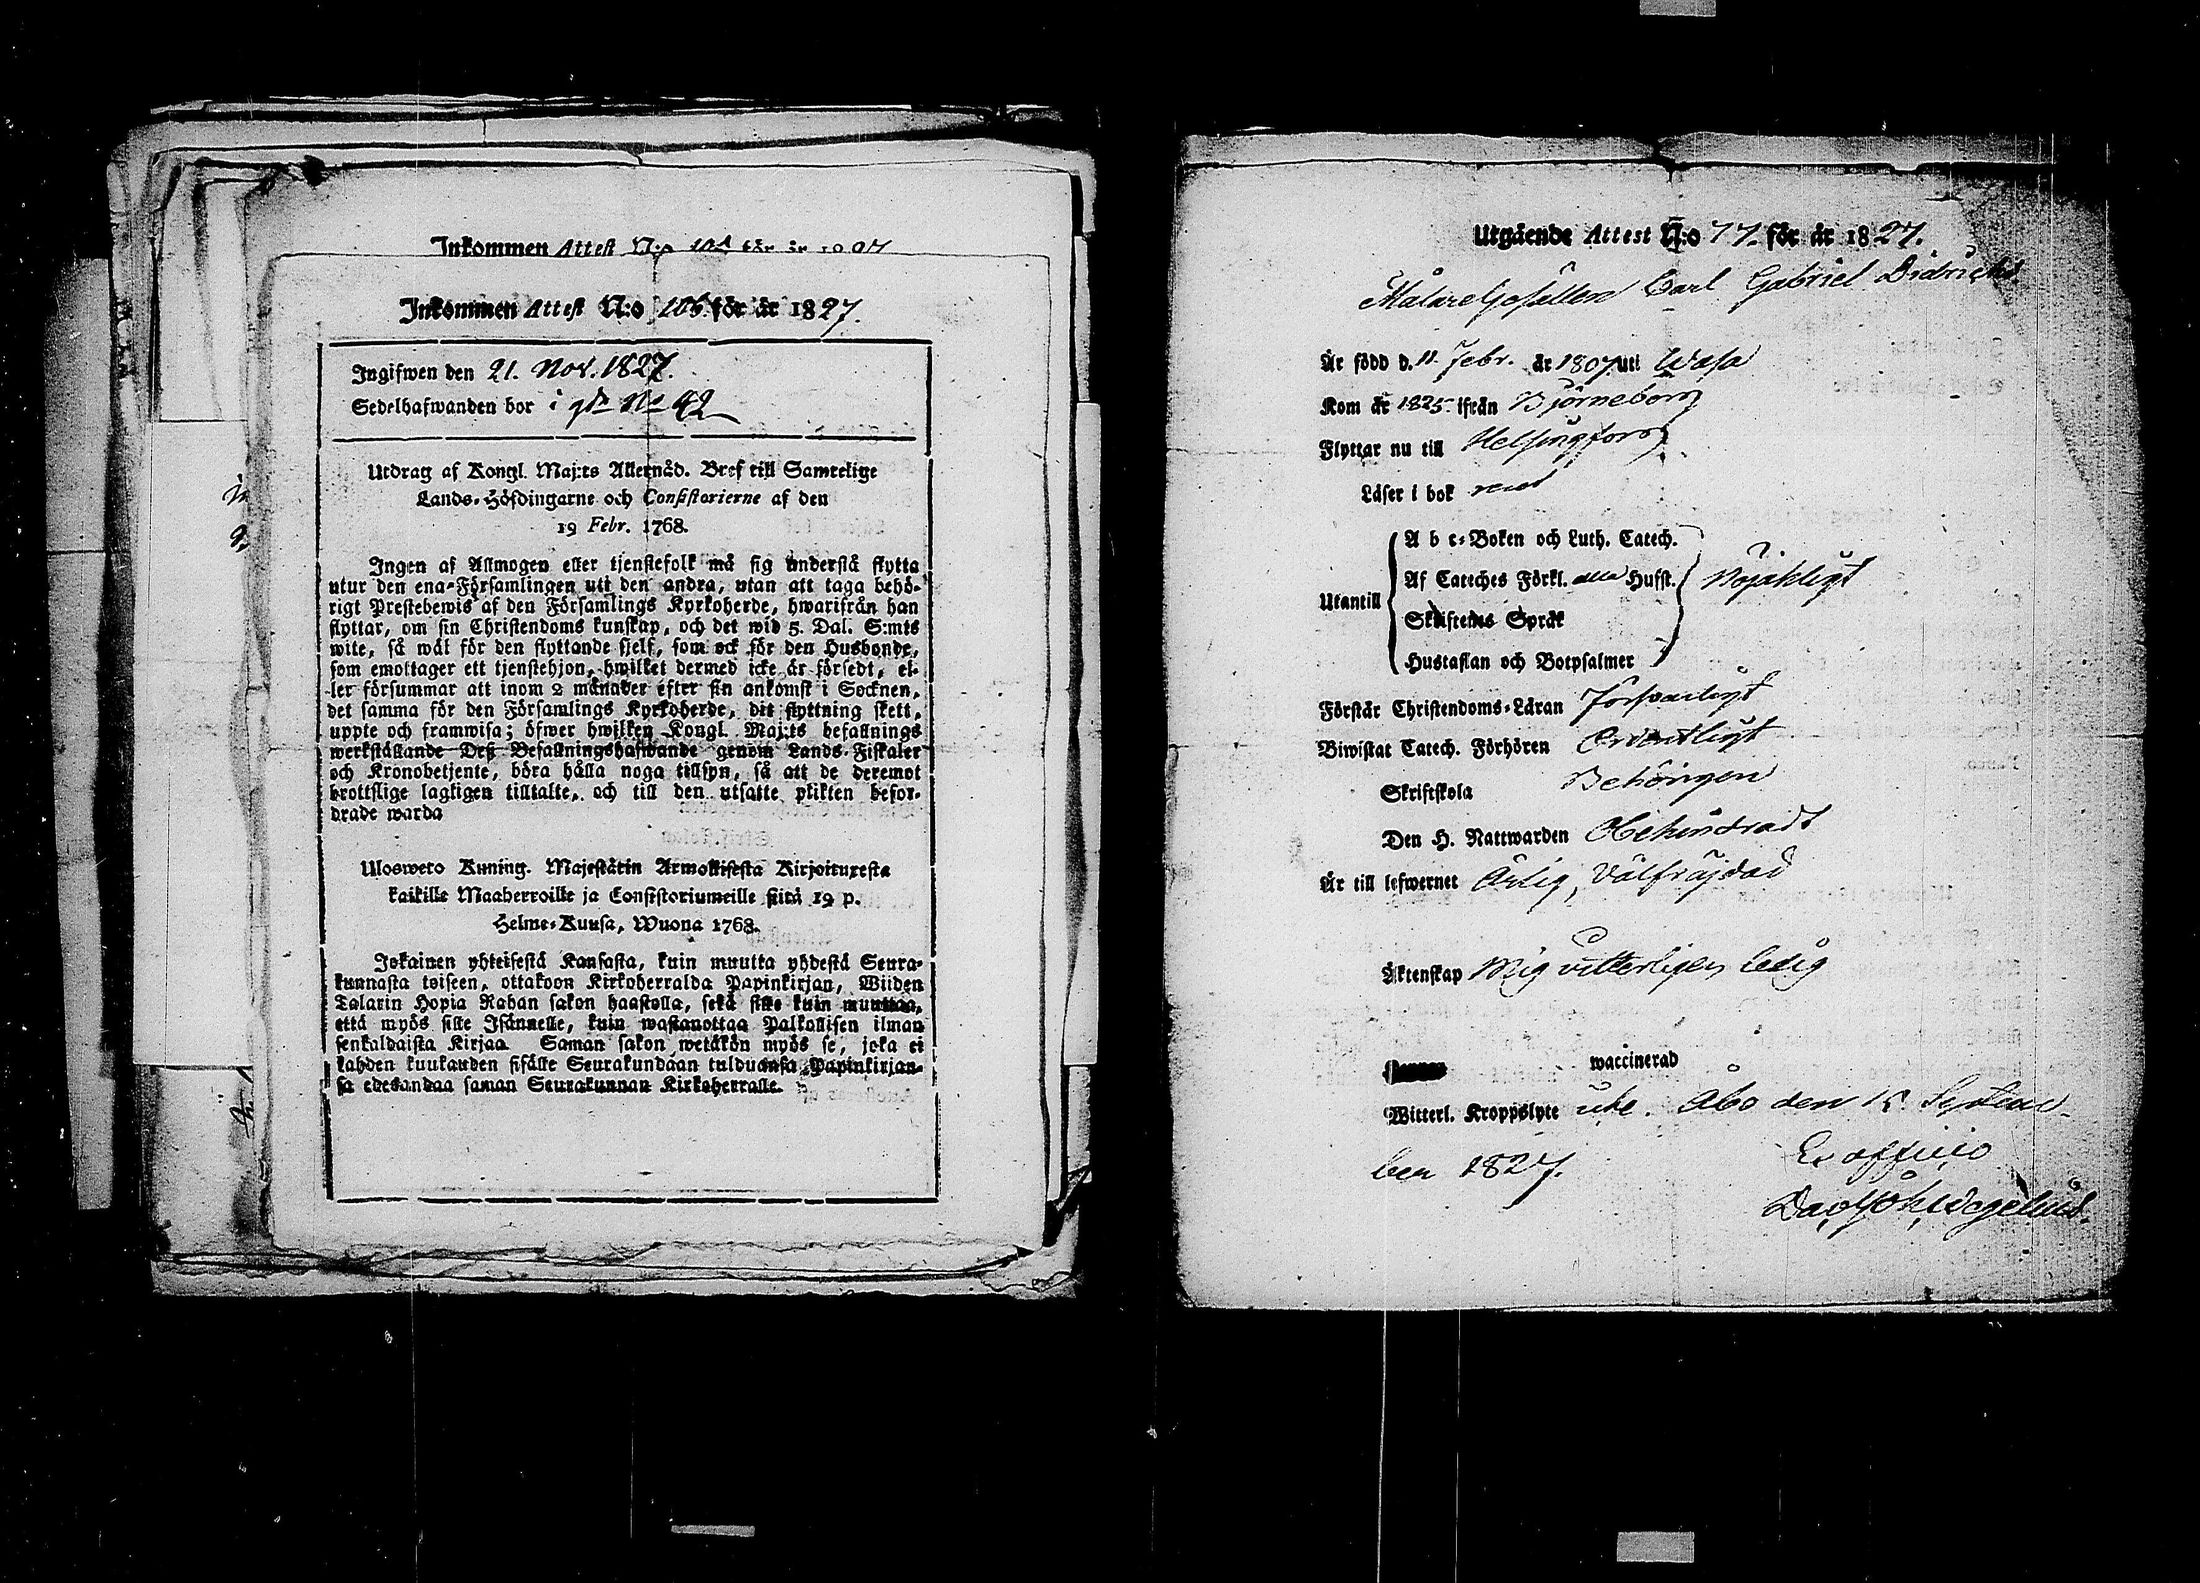 Inkommen Attest N:o
Inkommen Attest N:o 106. för år 1827.
Ingifwen den 21. Nov. 1827.
Sedelhafwanden bor i gdn No 42
Utdrag af Kongl. Maj:ts Allernåd. Bref till Samtelige
Lands-Höfdingarne och Consistorierne af den
19 Febr. 1768.
Ingen af Allmogen eller tjenstefolk må sig understå flytta
utur den ena-Församlingen uti den andra, utan att taga behö-
rigt Prestebewis af den Församlings Kyrkoherde, hwarifrån han
flyttar, om sin Christendoms kunskap, och det wid 5. Dal. S:mts
wite, så wäl för den flyttande sjelf, som ock för den Husbonde,
som emottager ett tjenstehjon, hwilket dermed icke är försedt, el-
ler försummar att inom 2 månader efter sin ankomst i Socknen,
det samma för den Församlings Kyrkoherde, dit flyttning skett,
uppte och framwisa; öfwer hwilken Kongl. Maj:ts befallnings
werkställande Deß Befallningshafwande genom Lands-Fiskaler
och Kronobetjente, böra hålla noga tillsyn, så att de deremot
brottslige lagligen tilltalte, och till den utsatte plikten befor-
drade warda
Ulosweto Kuning. Majestätin Armollisesta Kirjoituxesta
kaikille Maaherroille ja Consistoriumeille siitä 19 p.
Helme-Kuusa, Wuona 1768.
Jokainen yhteisestä Kansasta, kuin muutta yhdestä Seura-
kunnasta toiseen, ottakoon Kirkoherralda Papinkirjan, Wiiden
Talarin Hopia Rahan sakon haastolla, sekä sille kuin muuttaa,
että myös sille Isännelle, kuin wastanottaa Palkollisen ilman
senkaldaista Kirjaa Saman sakon wetäkön myös se, joka ei
kahden kuukauden sisälle Seurakundaan tulduansa Papinkirjan-
sa edesandaa saman Seurakunnan Kirkoherralle.
Utgående Attest N:o 77. för år 1827.
Målare Gesällen Carl Gabriel
Är född d. 11. Febr. år 1807 uti Wasa
Kom år 1825. ifrån Björneborg
Flyttar nu till Helsingfors
Läser i bok rent
A b c-Boken och Luth. Catech.
Af Cateches Förkl. alla Hufst.
Utantill
Nöjaktigt
Skriftenes Språk
Hustaflan och Botpsalmer
Förstår Christendoms-Läran Försvarligt
Biwistat Catech. Förhören Ordentligt
Skriftskola Behörigen
Den H. Nattwarden Obehindradt
Är till lefwernet Ärlig, Välfräjdad
Äktenskap Mig vitterligen ledig
waccinerad
Witterl. Kroppslyte Åbo den 15. Septem-
ber 1827.
Ex officio